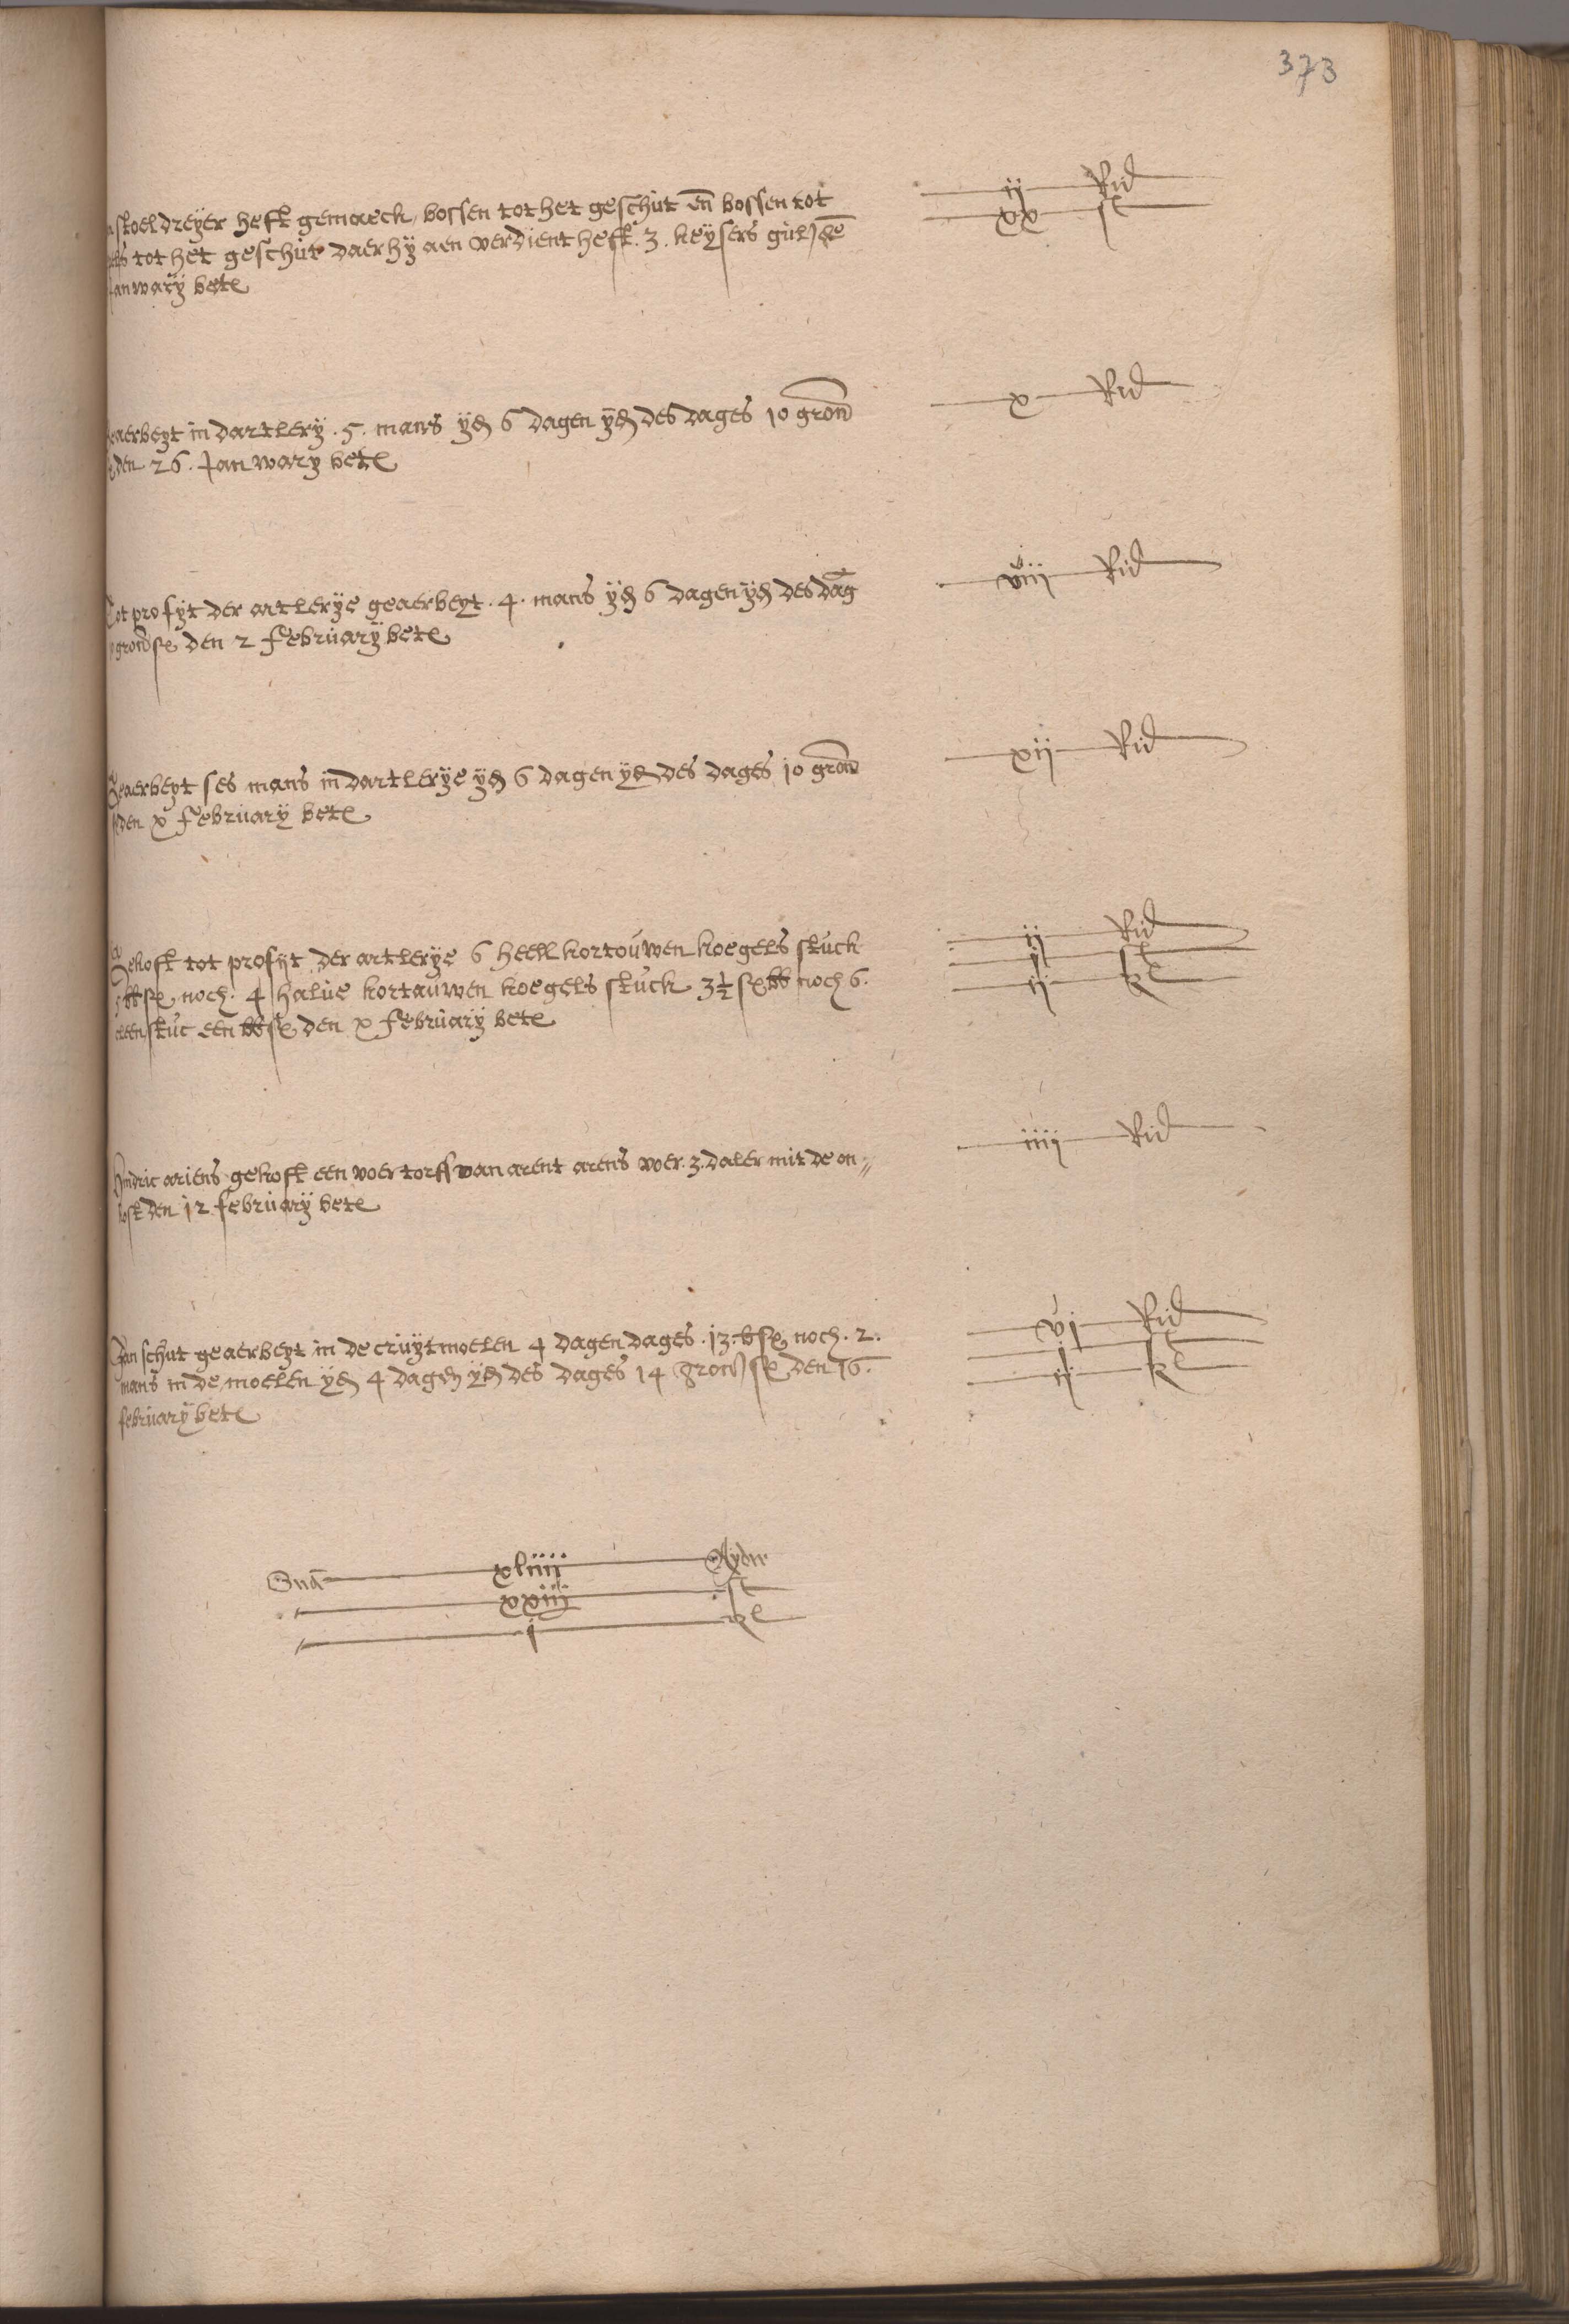 373
stoeldreyer heft gemaeck bossen tot het geschut en bossen tot
tot het geschut daer hy aen verdient heft .3. keysers gulde
Janwary bete
ij Rid
xx st
geaerbeyt in dartlery .5. mans yd 6 dagen yd des dages 10 gron
den 26. Janwary bete
x Rid
Tot profyt der artlerye geaerbeyt .4. mans yd 6 dagen yd des dag
den 2 february bete
viij Rid
Geaerbeyt ses mans in dartlerye yd 6 dagen yd des dages 10 gron
den x february bete
xij Rid
Gekoft tot profyt der artlerye 6 heell kortouwen koegels stuck
noch .4 halue kortauwen koegels stuck 3½ noch 6.
stuc een den x february bete
ij Rid
j st
ij kl
Hendric ariens gekoft een voer torff van arent arens voer .3. daler mit de on=
kost den 12 february bete
iiij Rid
Jan schut geaerbeyt in de cruytmoelen 4 dagen dages .13. noch .2.
mans in de moelen yd 4 dagen yd des dages 14 gron den 16.
february bete
vj Rid
j st
ij kl
xliiij Ryder
xxiij st
j kl